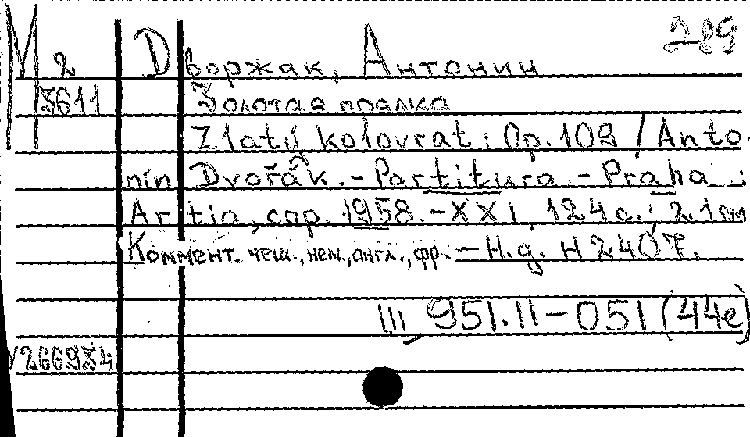 М 2 Дворжак, Антонин 289
3611 Золотая прялка
Zlatý kolovrat: Op. 109 / Anto-
nín Dvořák. - Partitura - Praha:
Artia, cop. 1958. - XXI, 124 с.; 21 см
Коммент. чеш., нем., англ., фр. - Н.д. H 2407.
III 951.11-051 (44е)
V266934